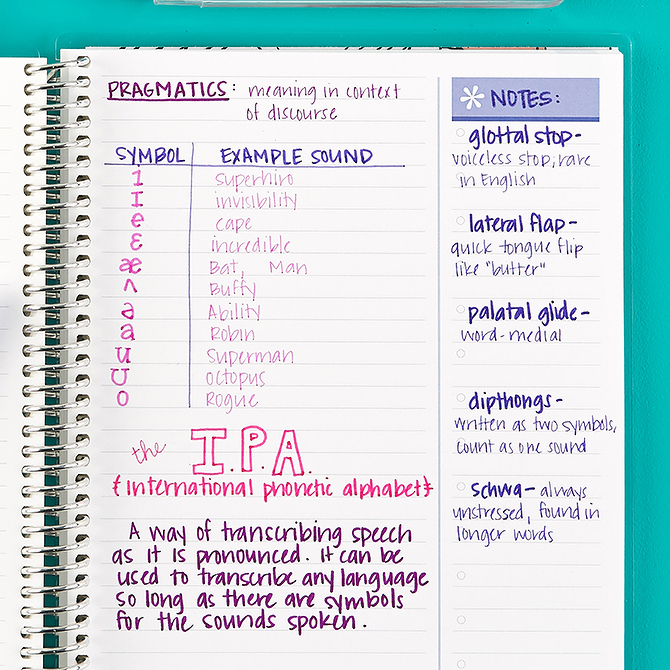 PRAGMATICS: meaning in context
of discourse
SYMBOL EXAMPLE SOUND
1 superhiro
I invisibility
e cape
ɛ incredible
æ Bat, Man
ʌ Buffy
a Ability
a Robin
u Superman
U octopus
o Rogue
the I.P.A.
{International phonetic alphabet}
A way of transcribing speech
as it is pronounced. It can be
used to transcribe any language
so long as there are symbols
for the sounds spoken.
NOTES:
glottal stop-
voiceless stop, rare
in English
lateral flap-
quick tongue flip
like "butter"
palatal glide-
word-medial
dipthongs-
written as two symbols,
count as one sound
schwa- always
unstressed, found in
longer words